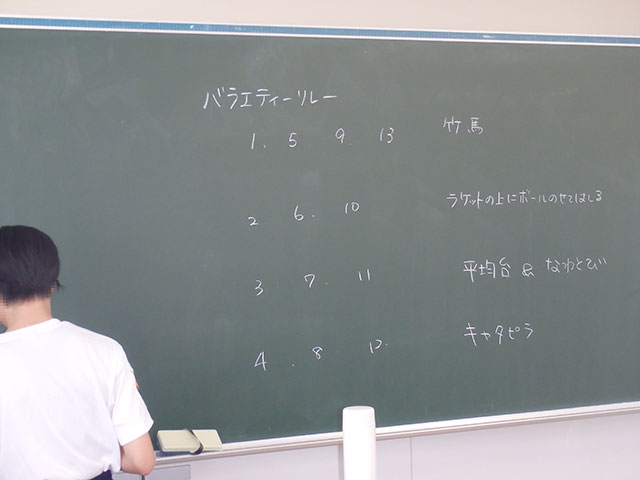 バラエティーリレー
1. 5. 9. 13 竹馬
2 6. 10 ラケットの上にボールのせてはしる
3. 7. 11 平均台 & なわとび
4. 8. 12. キャタピラ